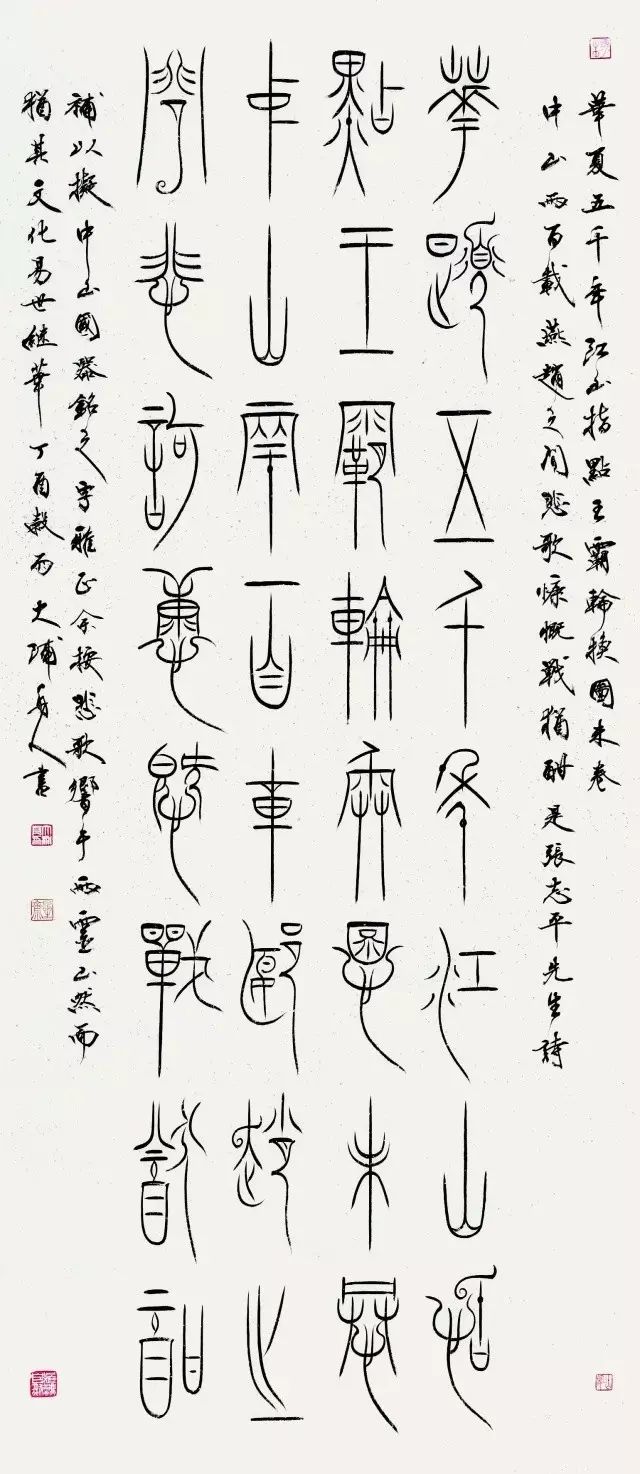 華夏五千年江山指點王霸輪換圖未卷
中山兩百載燕趙之間悲歌慷慨戰猶酣是張志平先生詩
華夏五千年江山指
點王霸輪換圖未卷
中山兩百載燕趙之
間悲歌慷慨戰猶酣
補以擬中山國器銘之字雅正余按悲歌響于兩靈山然而
猶其文化易世繼華丁酉穀雨大人書